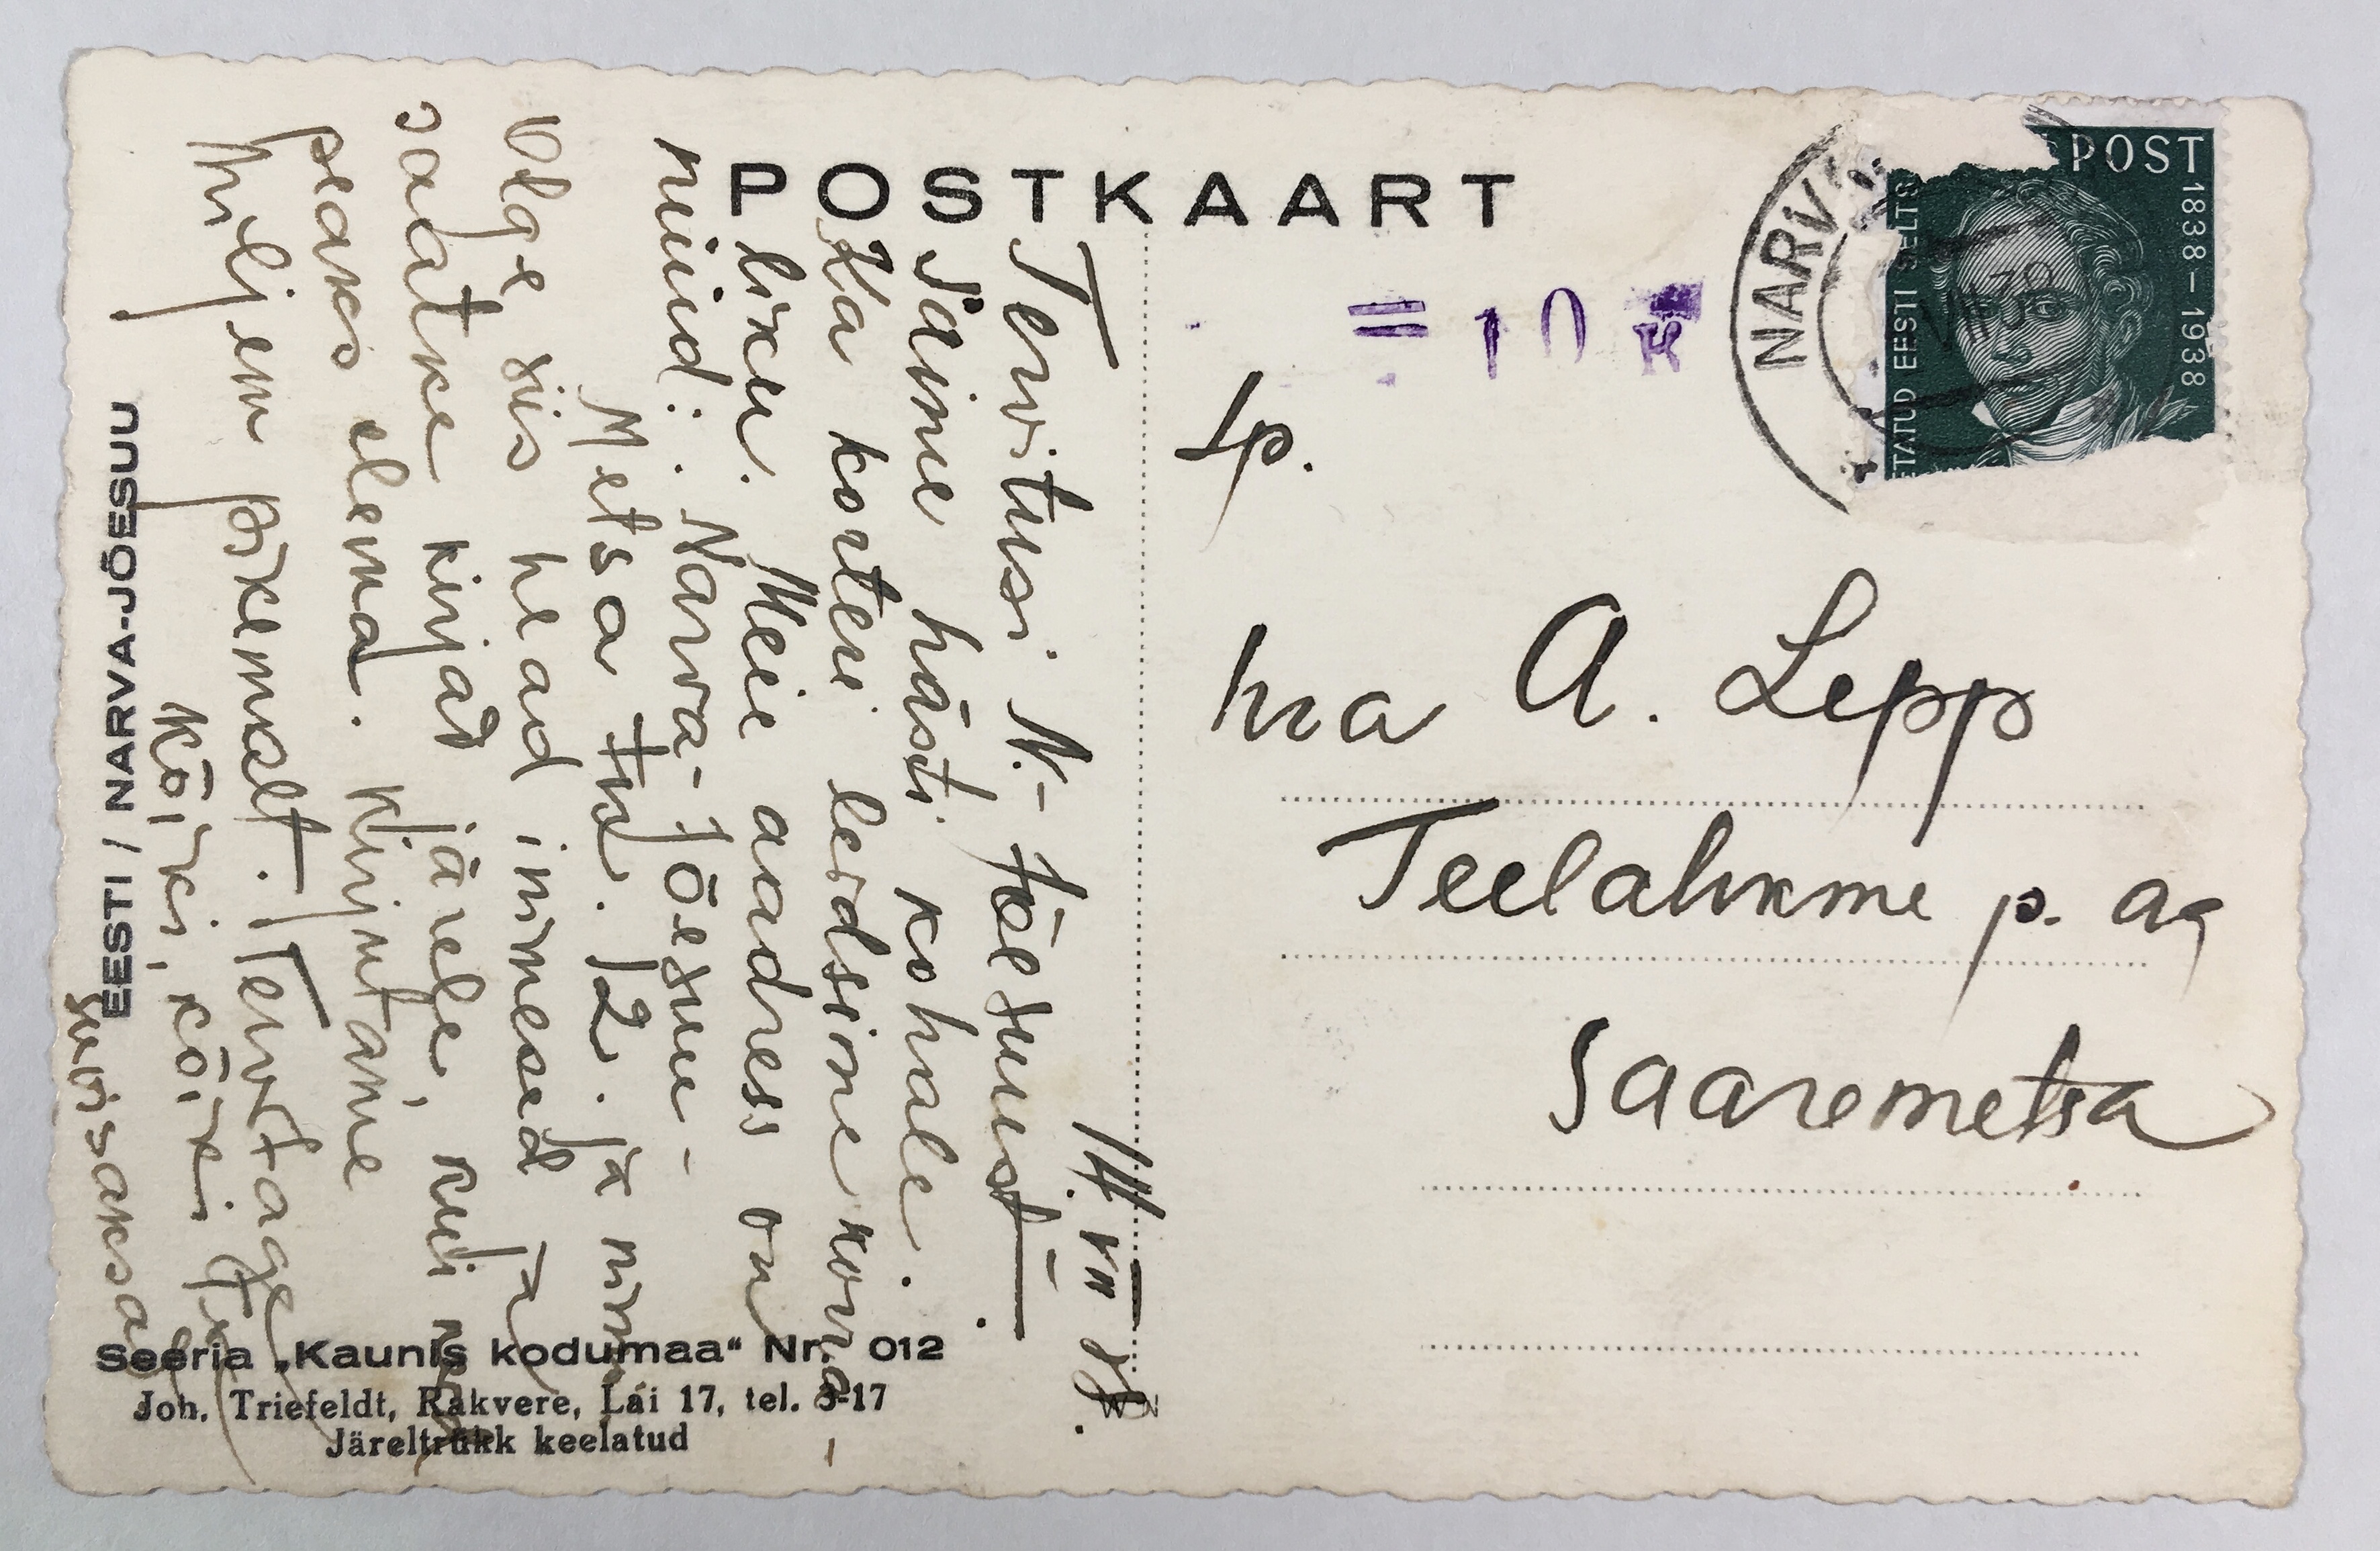 POSTKAART
POST
1838–1938
ETATUD EESTI SELTS
NARV
VII 38
= 10
Lp.
hra A. Lepp
Teelahkme p. ag
Saaremetsa
VII 38.
Tervitusi N.-Jõesuust.
Saime hästi kohale.
Ka korteri leidsime korra-
liku. Meie aadress on
nüüd: Narva-Jõesuu –
Metsa tn. 12. ja
Olge siis head inimesed ja
saatke kirjad järele, kui
peaks olema. Kirjutame
hiljem pikemalt. Tervitage
kõiki, kõiki
Suvisaksad
EESTI / NARVA-JÕESUU
Seeria „Kaunis kodumaa“ Nr. 012
Joh. Triefeldt, Rakvere, Lai 17, tel. 3-17
Järeltrükk keelatud